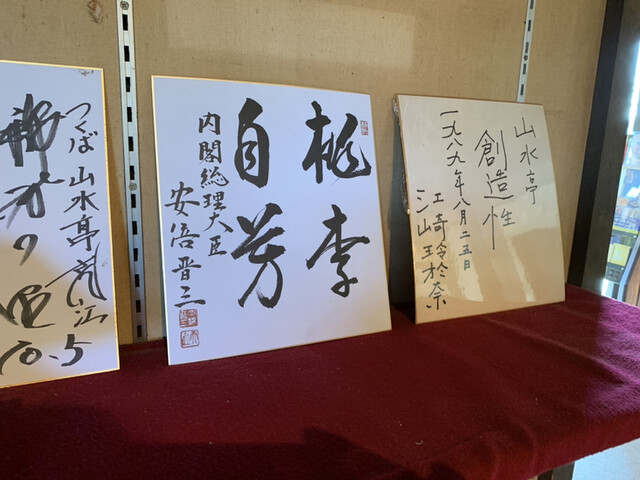 つくば 山水亭
桃李
自芳
内閣総理大臣
安倍晋三
山水亭
創造性
一九八九年八月二五日
江崎玲於奈